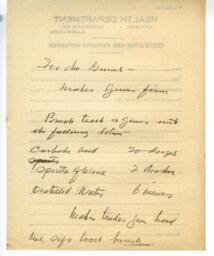 HEALTH DEPARTMENT
For the Gums –
Makes Gums firm
Brush teeth & gums with
the following lotion
Carbolic acid 20 drops
Spirits of Wine 2 drachms
Distilled Water 6 ounces
Makes tender gums hard
Use soft tooth brush